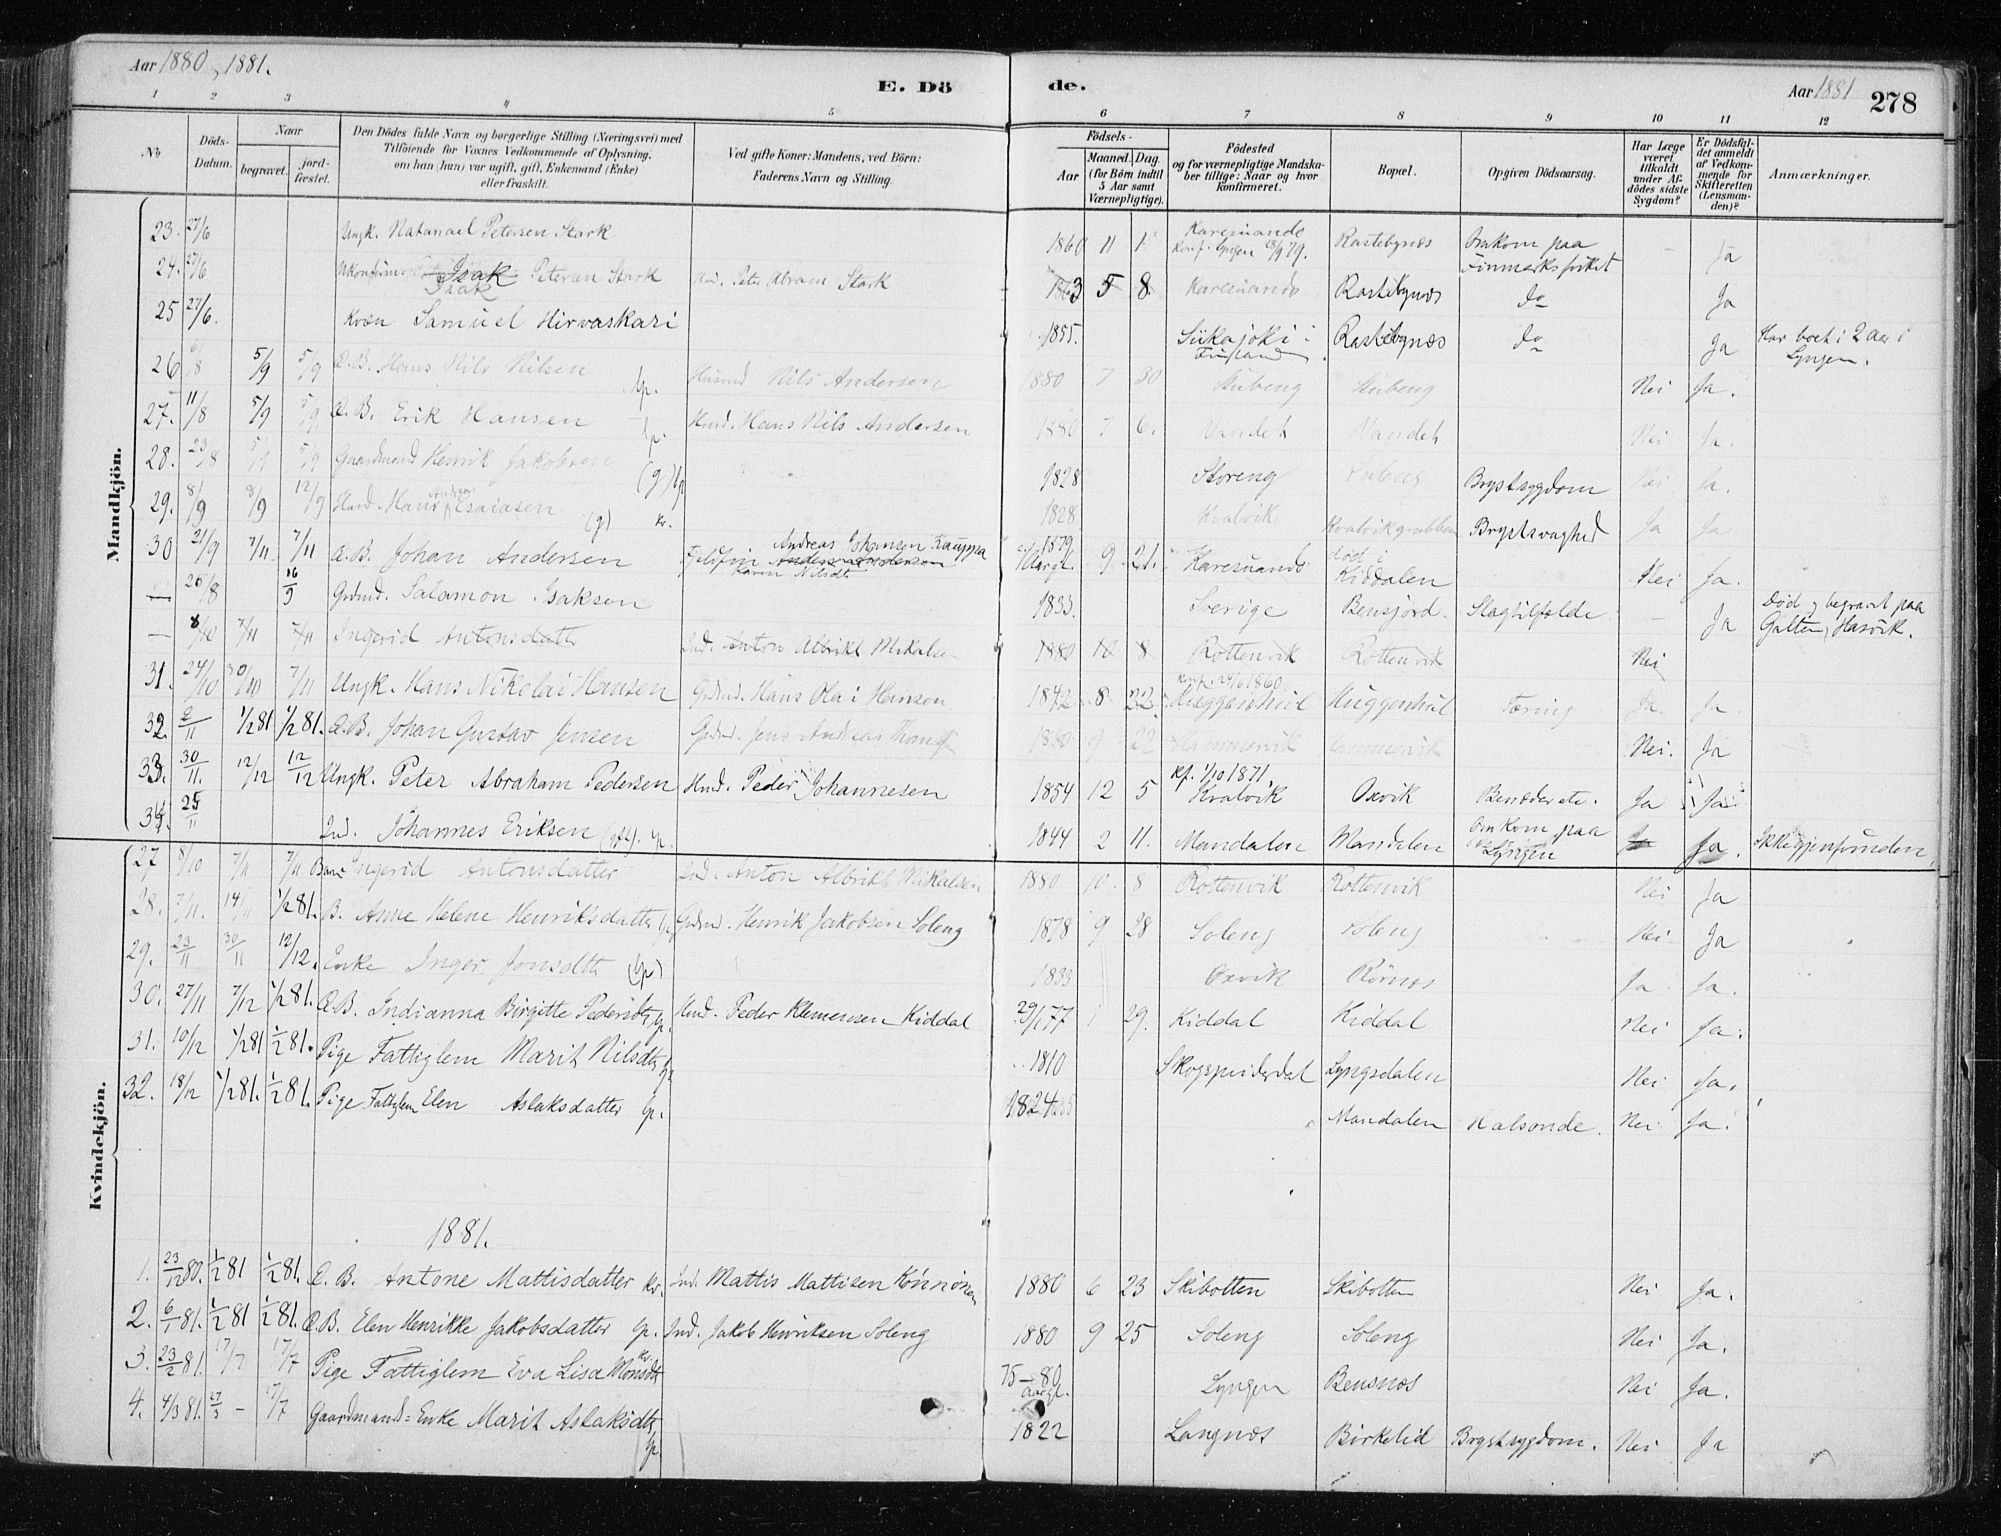 Aar 1880, 1881.
E. Dö
de.
Aar 1881
278
1 2 3 4 5 6 7 8 9 10 11 12
No
Döds-Datum.
Naar
begravet.
jord-fæstet.
Den Dödes fulde Navn og borgerlige Stilling (Næringsvei) med
Tilföiende for Voxnes Vedkommende af Oplysning,
om han (hun) var ugift, gift, Enkemand (Enke)
eller fraskilt.
Ved gifte Koner: Mandens, ved Börn:
Faderens Navn og Stilling.
Födsels-
Aar
Maaned. Dag.
(for Börn indtil
5 Aar samt
Værnepligtige).
Födested
og for værnepligtige Mandska-
ber tillige: Naar og hvor
konfirmeret.
Bopæl.
Opgiven Dödsaarsag.
Har Læge
været
tilkaldt
under Af-
dödes sidste
Sygdom?
Er Dödsfal-
det anmeldt
af Vedkom-
mende for
Skifteretten
(Lensman-
den)?
Anmærkninger.
Mandkjön.
23. 27/6 Ungk. Natanael Petersen Stark 1860 11 Karesuando Konf. Lyngen 79. Rastebynæs Omkom paa Finmarksfisket - Ja
24. 27/6 Isak Petersen Stark Ind. Peter Abram Stark 1863 5 8 Karesuando Rastebynæs do Ja
25 27/6. Kvæn Samuel Hirvaskari 1855. Siikajoki i Finland Rastebynæs do Ja Har boet i 2 Aar i Lyngen.
26 6/8 5/9 5/9 Æ.B. Hans Nils Nilsen Lp. Husmd Nils Andersen 1880 7 30 Stubeng Stubeng Nei Ja.
27. 11/8 5/9 5/9 Æ.B. Erik Hansen Lp. Husmd. Hans Nils Andersen 1880 7 6. Vandet Vandet Nei Ja.
28. 23/8 5/9 5/9 Gaardmand Henrik Jakobsen (g) Lp 1828 Storeng Brystsygdom Nei Ja.
29. 8/9 8/9 12/9 Hans Andreas Esaiasen (g) kv. 1828. Kvalvik Kvalvikgrubben Brystsvaghed Ja Ja
30 21/9 7/11. 7/11 Æ.B. Johan Andersen Fjeldfin Andreas Johansen Kauppa Karen Nilsdtr 1879 9 21. Karesuando död i Kiddalen Nei Ja.
— 20/8 16/9 Grdmd. Salamon Isaksen 1833. Sverige Bensjord. Slagtilfælde - Ja Död og begravet paa Galten, Hasvik.
— 8/10 7/11 7/11 Ingerid Antonsdatter Ind. Anton Albrikt Mikalsen 1880 10 8 Rottenvik Rottenvik Nei
31. 24/10 30/10 7/11 Ungk. Hans Nikolai Hansen Grdmd. Hans Olai Hansen 1842 8 22 1860 Huggenhul Tæring Ja. Ja.
32. 2/11 1/2 81 1/2 81. Æ.B. Johan Gustav Jensen Grdmd. Jens Andreas 1880 9 22 Hammervik Hammervik Nei. Ja
33. 30/11. 12/12 12/12 Ungk. Peter Abraham Pedersen Husmd. Peder Johannesen 1854 12 5 kf. 1/10 1871 Kvalvik Oxvik Benædder etc. Ja Ja
34. 25/11 Ind. Johannes Eriksen (gft). Lp. 1844 2 11. Mandalen Mandalen Omkom paa Lyngen Ja. Ikke gjenfunden.
Kvindekjön.
27 8/10 7/11 7/11 Barn Ingerid Antonsdatter Ind. Anton Albrikt Mikalsen 1880 10. 8 Rottenvik Rottenvik Nei Ja
28. 7/11. 14/11 1/2 81. B. Anne Helene Henriksdatter Lp Grdmd. Henrik Jakobsen Soleng 1878 9 28 Soleng Soleng Nei Ja
29. 23/11 30/11 12/12. Enke Inger Jonsdtr (Lp) 1833 Oxvik Rörnæs Ja. Ja.
30. 27/11 7/12 1/2 81. Æ.B. Indianna Birgitte Pedersdtr Lp. Husmd. Peder Klemensen Kiddal 29/1 77 1 29. Kiddal Kiddal Nei Ja.
31. 10/12 1/2 81 1/2 81. Pige Fattiglem Marit Nilsdtr Lp 1810 Lyngsdalen Nei Ja.
32. 18/12 1/2 81. 1/2 81. Pige Fattiglem Elen Aslaksdatter Lp. 1824 Mandalen Halsonde. Nei Ja.
1881.
1. 23/12 80. 1/2 81 1/2 81. Æ.B. Antone Mattisdatter kv. Ind. Mattis Mattisen Könnönen 1880 6 23 Skibotten Skibotten Nei Ja.
2. 6/1 81. 1/2 81 1/2 81. Æ.B. Elen Henrikke Jakobsdatter Lp. Ind. Jakob Henriksen Soleng 1880 9 25 Soleng Soleng Nei Ja.
3. 23/2 81. 17/7 17/7 Pige Fattiglem Eva Lisa Monsdtr kv. 75-80 Aargl. Lyngen Bensnæs Nei Ja.
4. 4/3 81. 27/3 - 17/7 Gaardmands-Enke Marit Aslaksdtr Lp. 1822 Langnæs Birkelid Brystsygdom. Nei Ja